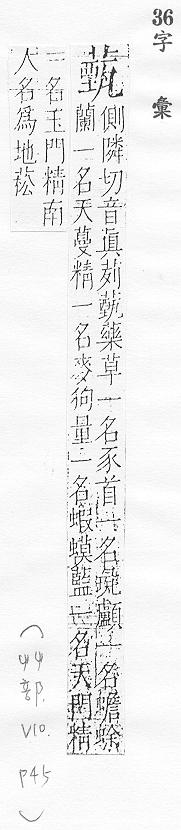 36 字彙
薽 側隣切音眞茢薽藥草一名豕首一名彘顱一名蟾蜍
蘭一名天蔓精一名麥狗量一名蝦蟆藍一名天門精
一名玉門精南
人名爲地菘
(艸部. V10. P45)